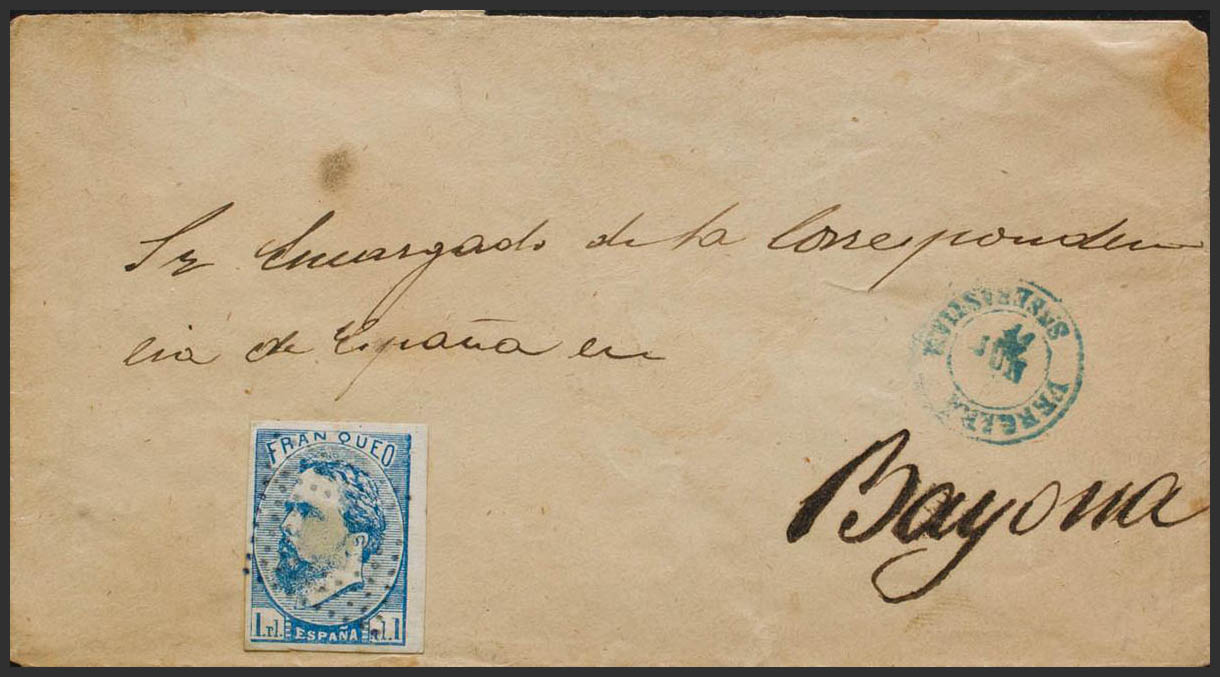 Sr Encargado de la Corresponden
cia de España en
Bayona
VERGARA
JUN
FRANQUEO
1 rl. ESPAÑA rl. 1